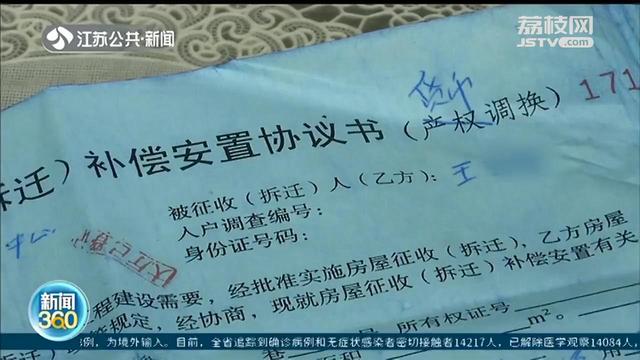 江苏公共·新闻
荔枝网
JSTV.com
货币
拆迁）补偿安置协议书（产权调换）171
被征收（拆迁）人（乙方）：王
入户调查编号：
身份证号码：
中心
程建设需要，经批准实施房屋征收（拆迁），乙方房屋
规定，经协商，现就房屋征收（拆迁）补偿安置有关
巷
号
所有权证号
m²。
新闻
360
例，为境外输入。目前，全省追踪到确诊病例和无症状感染者密切接触者14217人，已解除医学观察14084人，